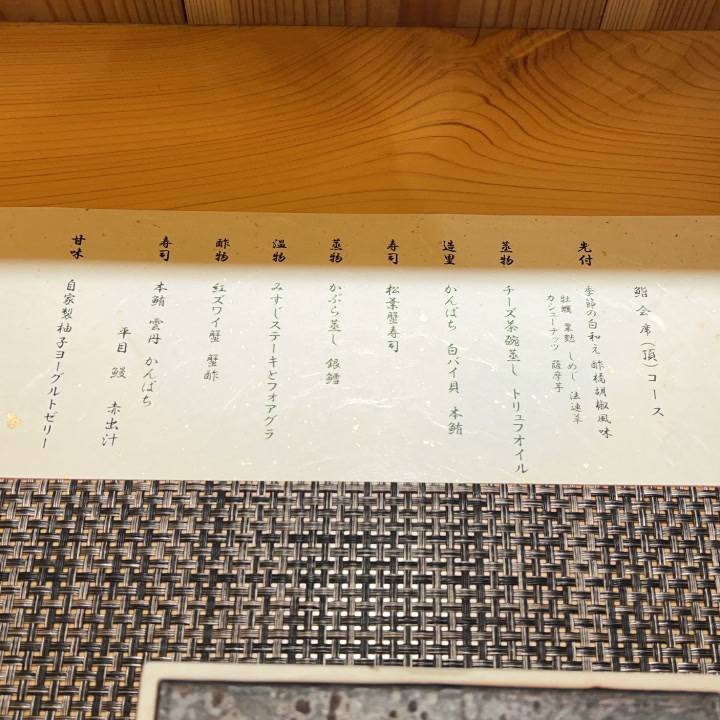 鮨会席(頂)コース
先付
季節の白和え 酢橘胡椒風味
牡蠣 粟麩 しめじ 法蓮草
カシューナッツ 薩摩芋
蒸物
チーズ茶碗蒸し トリュフオイル
造里
かんぱち 白バイ貝 本鮪
寿司
松葉蟹寿司
蒸物
かぶら蒸し 銀鱈
温物
みすじステーキとフォアグラ
酢物
紅ズワイ蟹 蟹酢
寿司
本鮪 雲丹 かんぱち
平目 鰻 赤出汁
甘味
自家製柚子ヨーグルトゼリー